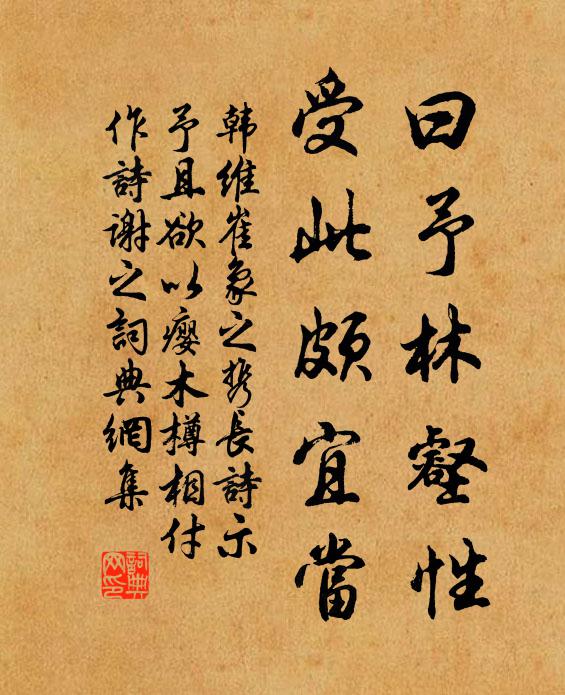 曰予林壑性
受此頗宜當
韩维崔象之攜長詩示
予且欲以癭木樽相付
作詩謝之詞典網集
詞典網印